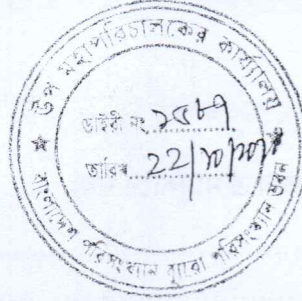 উপ মহাপরিচালকের কার্যালয়
ডাইরী নং
তারিখ 22/10/
★ বাংলাদেশ পরিসংখ্যান ব্যুরো পরিসংখ্যান ভবন ★